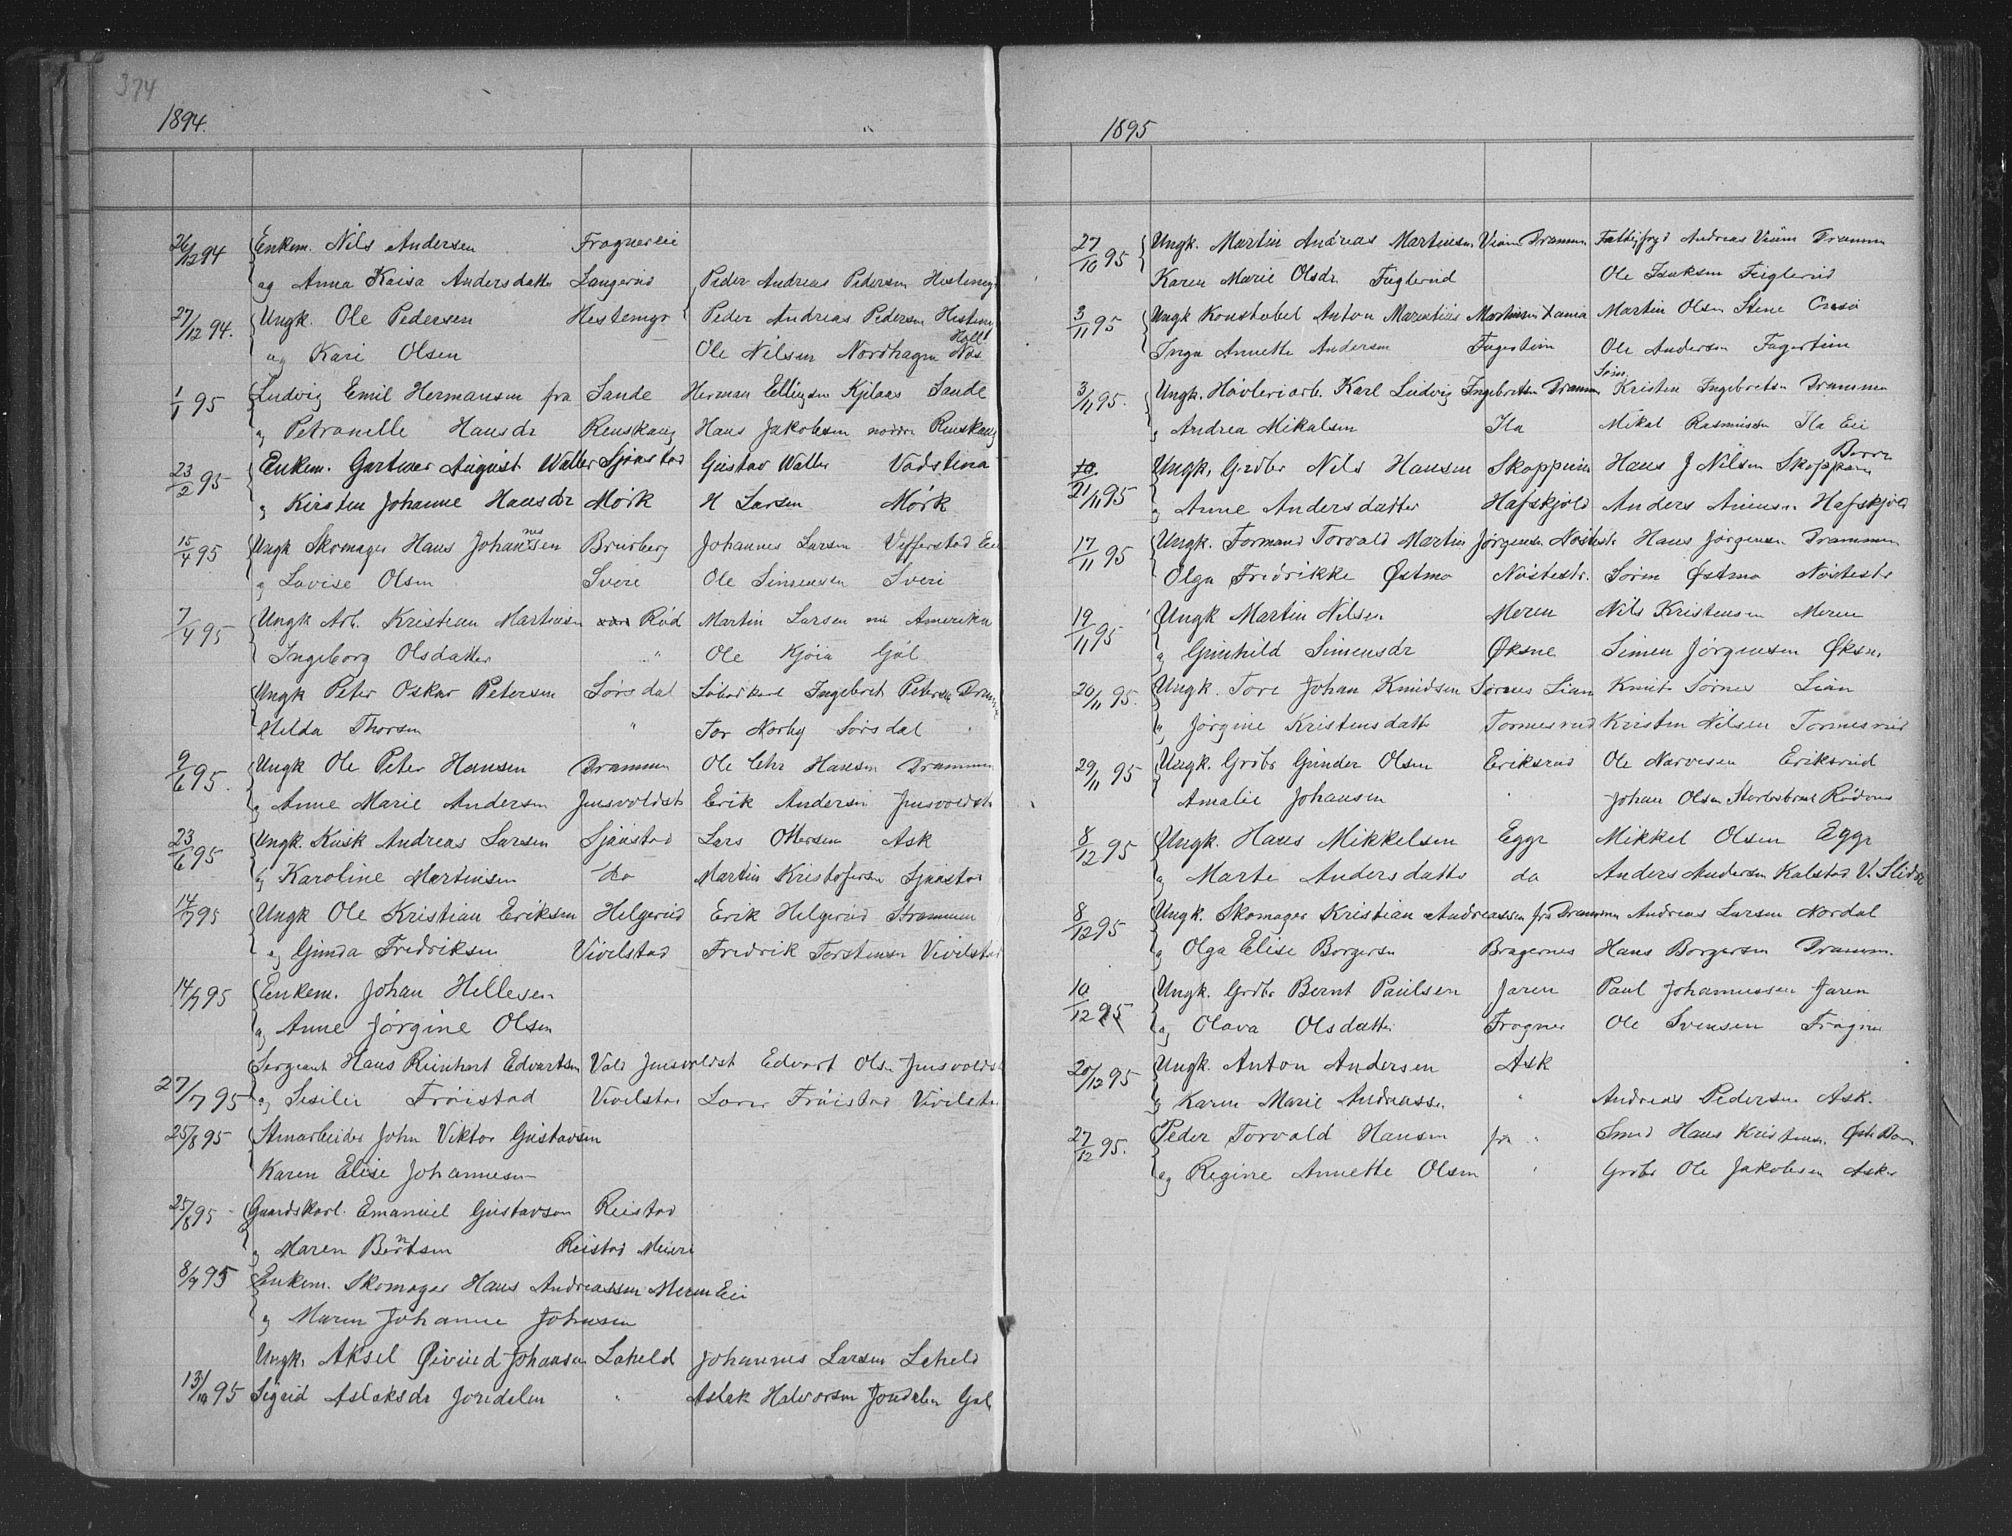 374
1894.
26/12 94 Enkem. Nils Andersen Fragnereie
og Anna Kaisa Andersdatter Langerud Peder Andreas Pedersen Hestemyr
27/12 94. Ungk. Ole Pedersen Hestemyr Peder Andreas Pedersen
og Kari Olsen Ole Nilsen Nordhagen
1/1 95 Ludvig Emil Hermansen fra Sande Herman Ellingsen Sande
og Petronelle Hansdr Renskaug Hans Jakobsen nordre Renskaug
23/2 95 Enkem. Gartner August Waller Sjåstad Gustav Waller Vadstina
og Kirsten Johanne Hansdr Mørk H Larsen Mørk
15/4 95 Ungk Skomager Hans Johannesen Brusberg Johannes Larsen Eie
og Lovise Olsen Sveri Ole Simensen Sveri
7/4 95 Ungk Arb. Kristian Martinsen Rød Martin Larsen nu Amerika
Ingeborg Olsdatter " Ole Kjøia Gol
Ungk Peter Oskar Petersen Sørsdal Ingebret Petersen Drammen
Hilda Thorsen " Tor Norby Sørsdal
9/6 95. Ungk Ole Peter Hansen Drammen Ole Chr Hansen Drammen
og Anne Marie Andersen Junsvoldst Erik Andersen Junsvoldst
23/6 95 Ungk. Kusk Andreas Larsen Sjåstad Lars Ottersen Ask
og Karoline Martinsen do Martin Kristofersen Sjåstad
14/7 95 Ungk Ole Kristian Eriksen Helgerud Erik Helgerud Strømmen
og Gunda Fredriksen Vivelstad Fredrik Torstensen Vivelstad
14/7 95 Enkem. Johan Hellesen
og Anne Jørgine Olsen
Sergeant Hans Reinhart Edvartsen Vald Junsvoldst Edvart Olsen Junsvoldst
27/7 95 og Sesilie Frøistad Vivelstad Lars Frøistad Vivelstad
25/8 95 Stenarbeider John Viktor Gustavsen
Karen Elise Johannesen
25/8 95 - Gaardskarl. Emanuel Gustavson Reistad
og Maren Berntsen Reistad Meieri
8/9 95 Enkem. Skomager Hans Andreassen Meren Eie
og Maren Johanne Johnsen
Ungk. Aksel Øivind Johansen Laheld Johannes Larsen Laheld
13/10 95 Sigrid Aslaksdr Jondalen " Aslak Halvorsen Jondalen Gol
1895
27/10 95 Ungk. Martin Andreas Martinsen Drammen Andreas Drammen
Karen Marie Olsdr Fuglerud Ole Isaksen Fuglerud
3/11 95 Ungk Konstabel Anton Martinsen Xania Martin Olsen Stene
Inga Annette Andersen Fagertun Ole Andersen Fagertun
3/11 95. Ungk. Høvleriarb. Karl Ludvig Ingebretsen Drammen Kristen Ingebretsen Drammen
og Andrea Mikalsen Ila Mikal Rasmussen Ila Eie
21/11 95 Ungk. Grdbr Nils Hansen Skoppum Hans J Nilsen Skoppum Borre
og Anne Andersdatter Hafskjold Anders Hafskjold
17/11 95 Ungk. Formand Torvald Martin Jørgensen Nøstestr Hans Jørgensen Drammen
Olga Fredrikke Østmo Nøstestr. Søren Østmo Nøstestr
19/11 95 Ungk Martin Nilsen Meren Nils Kristensen Meren
og Gunhild Simensdr Øksne Simen Jørgensen Øksne
20/11 95. Ungk. Tore Johan Knudsen Sørnes Lian Knut Sørnes Lian
" Jørgine Kristensdatter Tormesrud Kristen Nilsen Tormesrud
29/11 95 Ungk. Grdbr Gunder Olsen Eriksrud Ole Narvesen Eriksrud
Amalie Johansen " Johan Olsen
8/12 95 Ungk. Hans Mikkelsen Egge Mikkel Olsen Egge
og Marte Andersdatter do Anders Andersen Kalstad V. Slidre
8/12 95 Ungk. Skomager Kristian Andreassen fra Drammen Andreas Larsen Nordal
og Olga Elise Borgersen Bragernes Hans Borgersen Drammen
10/12 95 Ungk. Grdbr Bernt Paulsen Jaren Paul Johannessen Jaren
og Olava Olsdatter Fragne Ole Svensen Fragne
20/12 95 Ungk. Anton Andersen Ask
og Karen Marie Andreassen " Andreas Pedersen Ask.
27/12 95. Peder Torvald Hansen fra " Smed Hans Kristensen
og Regine Annette Olsen " Grdbr Ole Jakobsen Asker